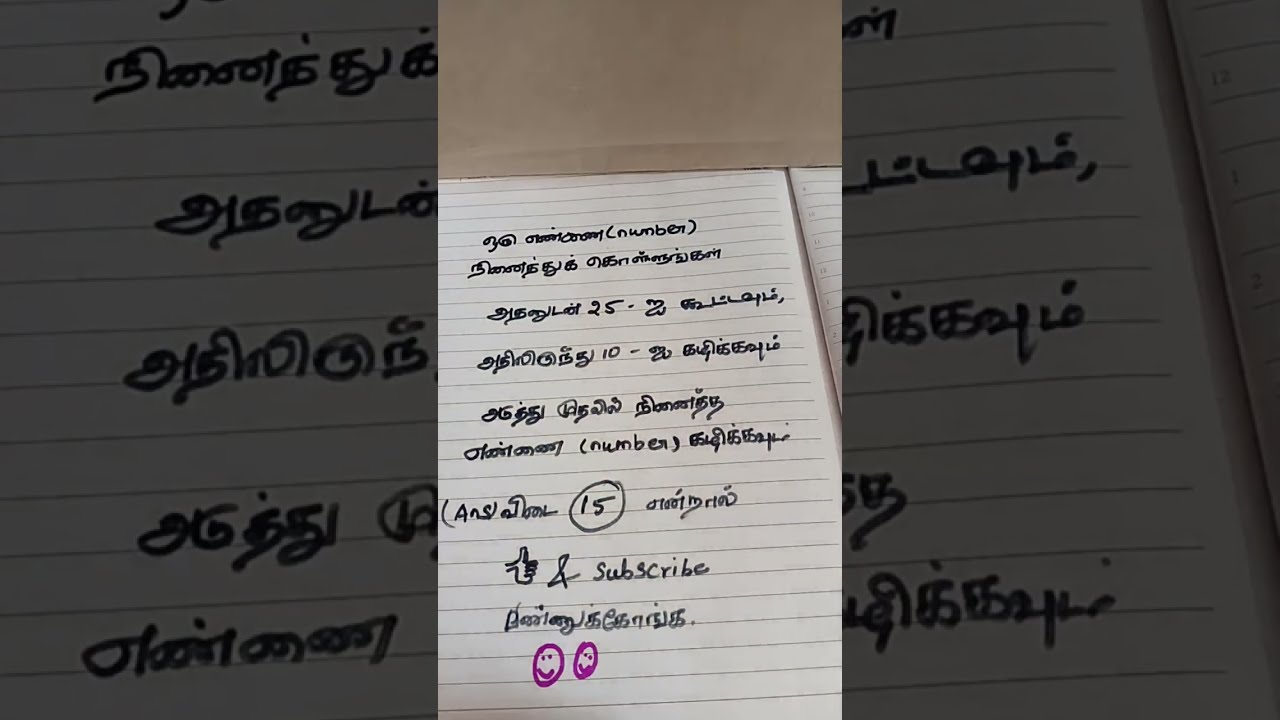 ஒரு எண்ணை (number)
நினைத்துக் கொள்ளுங்கள்
அதனுடன் 25 - ஐ கூட்டவும்,
அதிலிருந்து 10 - ஐ கழிக்கவும்
அடுத்து முதலில் நினைத்த
எண்ணை (number) கழிக்கவும்
(Ans) விடை 15 என்றால்
& Subscribe
பண்ணுக்கோங்க.